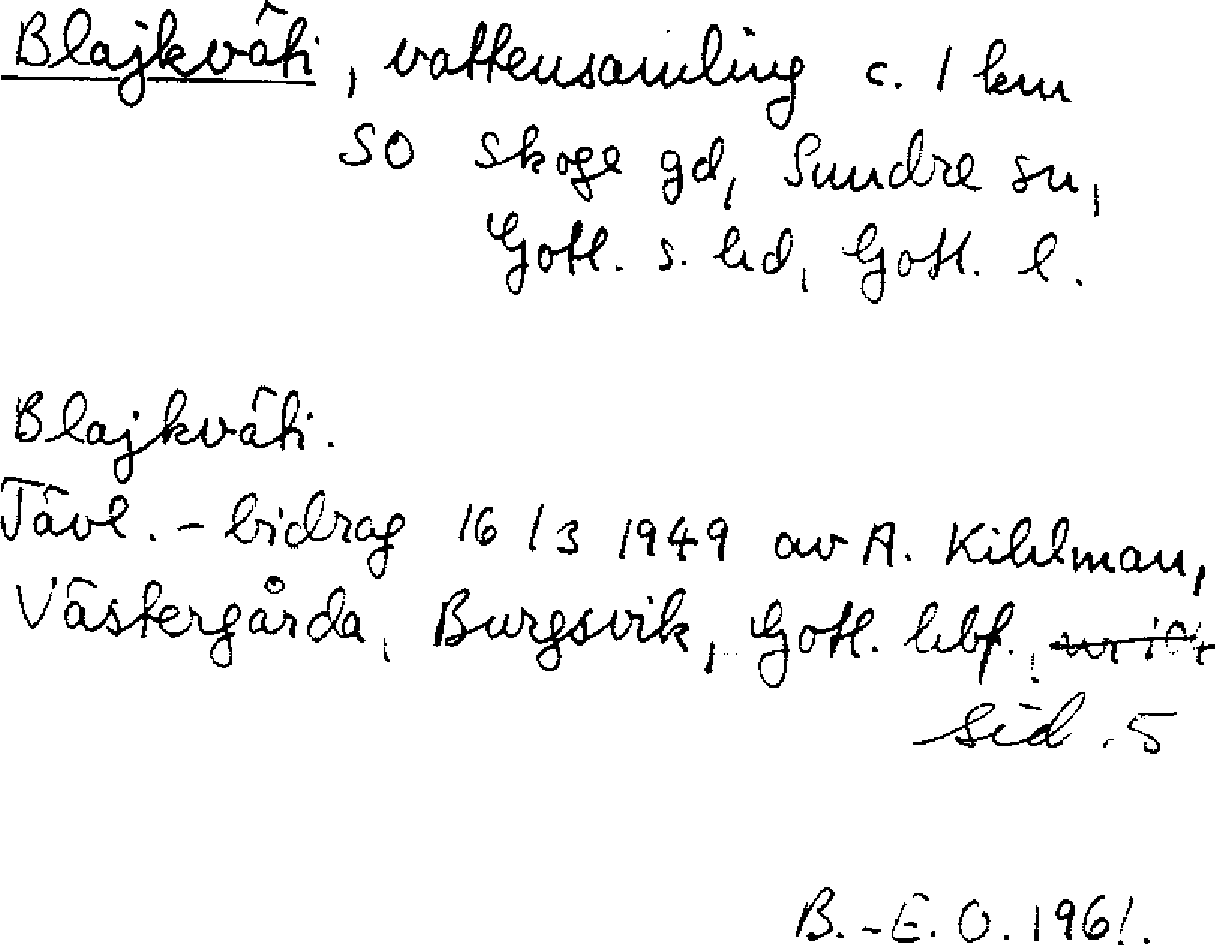 Blajkväti, vattensamling c. 1 km
SO Skoge gd, Sundre sn,
Gotl. s. hd, Gotl. l.
Blajkväti.
Tävl.-bidrag 16/3 1949 av A. Kihlman,
Västergårda, Burgsvik, Gotl. hbf.,
sid. 5
B.-E. O. 1961.